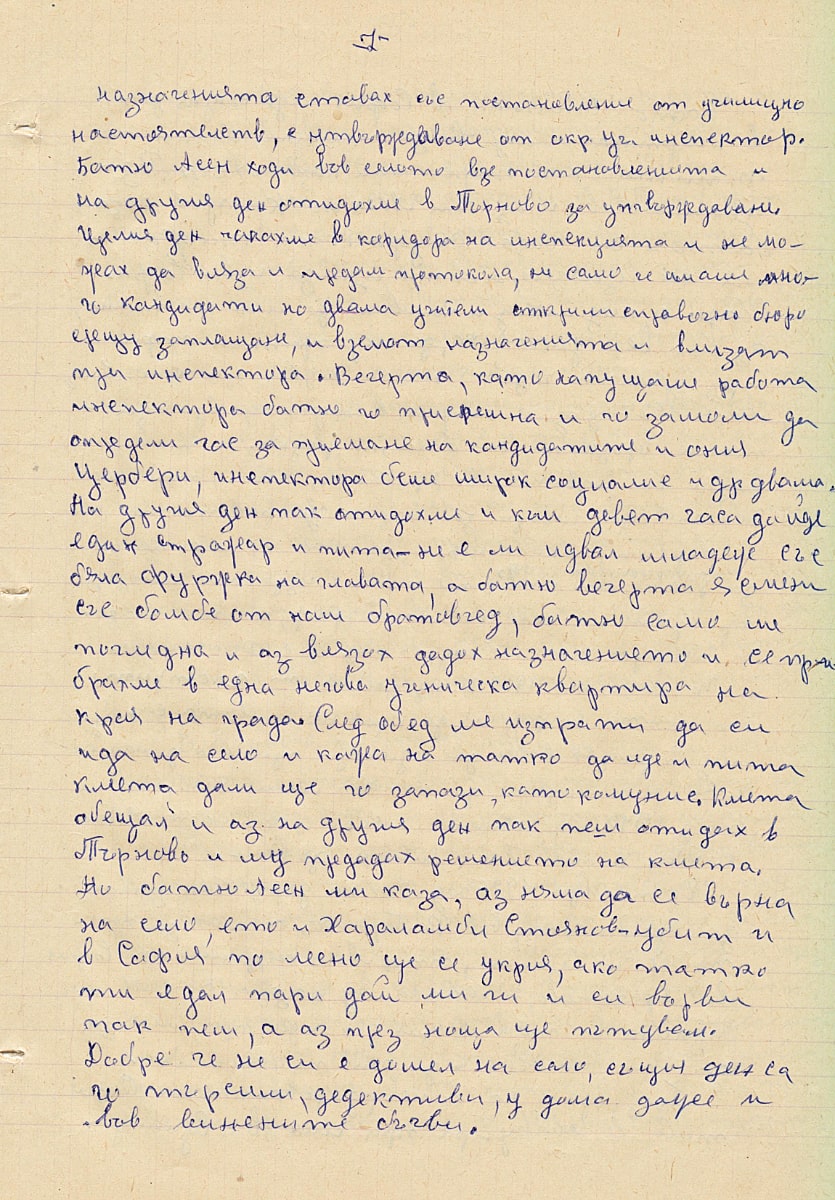 -7-
назначенията ставах със постановление от училищно
настоятелств, с утвърждаване от окр. уч. инспектор.
Батю Асен ходи във селото взе постановленията и
на другия ден отидохме в Търново за утвърждаване.
Целия ден чакахме в коридора на инспекцията и не мо-
жах да вляза и предам протокола, не само че имаше мно-
го кандидати но двама учители открили справочно бюро
срещу заплащане, и вземат назначенията и влизат
при инспектора. Вечерта, като напущаше работа
инспектора батю го пресрешна и го замоли да
определи час за приемане на кандидатите и ония
Цербери, инспектора беше широк социалис и др двама.
На другия ден пак отидохме и към девет часа дойде
един стражар и пита-не е ли идвал младеж със
бяла фуражка на главата, а батю вечерта я смени
със бомбе от наш братовчед, батю само ме
погледна и аз влязох дадох назначението и се при-
брахме в една негова ученическа квартира на
края на града. След обед ме изпрати да си
ида на село и кажа на татко да иде и пита
кмета дали ще го запази, като комунис. Кмета
обещал и аз на другия ден пак пеш отидох в
Търново и му предадох решението на кмета.
Но батю Асен ми каза, аз няма да се върна
на село, ето и Хараламби Стоянов-убит и
в София по лесно ще се укрия, ако татко
ти я дал пари дай ми ги и си върви
пак пеш, а аз през ноща ще пътувам.
Добре че не си е дошел на село, същия ден са
го търсили, дедективи, у дома даже и
във винените бъчви.